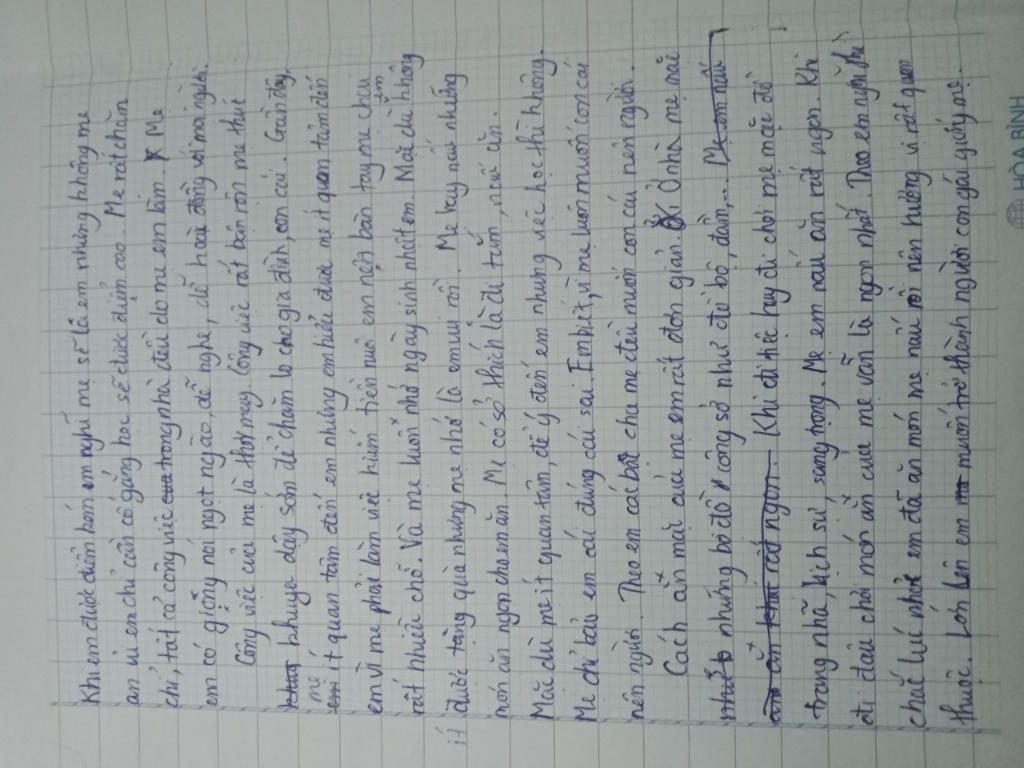 Khi em được điểm kém em nghĩ mẹ sẽ la em nhưng không mẹ
an ủi em chỉ cần cố gắng học sẽ được điểm cao. Mẹ rất chăm
chỉ, tất cả công việc trong nhà đều do mẹ em làm. Mẹ
em có giọng nói ngọt ngào, dễ nghe, dễ hoà đồng với mọi người.
Công việc của mẹ là thợ may. Công việc rất bận rộn mẹ thức
khuya dậy sớm để chăm lo cho gia đình, con cái. Gần đây,
mẹ ít quan tâm đến em nhưng em hiểu được mẹ ít quan tâm đến
em vì mẹ phải làm việc kiếm tiền nuôi em nên bàn tay mẹ chai
rất nhiều chỗ. Và mẹ luôn nhớ ngày sinh nhật em. Mặc dù không
được tặng quà nhưng mẹ nhớ là em vui rồi. Mẹ hay nấu những
món ăn ngon cho em ăn. Mẹ có sở thích là đi tắm, nấu ăn.
Mặc dù mẹ ít quan tâm, để ý đến em nhưng việc học thì không.
Mẹ chỉ bảo em cái đúng cái sai. Em biết, vì mẹ luôn muốn con cái
nên người. Theo em cái bậc cha mẹ đều muốn con cái nên người.
Cách ăn mặc của mẹ em rất đơn giản. Ở nhà mẹ mặc
những bộ đồ công sở như đồ bộ, đầm,... 
Khi đi tiệc hay đi chơi mẹ mặc đồ
trang nhã, lịch sự, sang trọng. Mẹ em nấu ăn rất ngon. Khi
đi đâu chơi món ăn của mẹ vẫn là ngon nhất. Theo em nghĩ thì
chắc lúc nhỏ em đã ăn món mẹ nấu rồi nên hương vị rất quen
thuộc. Lớn lên em muốn trở thành người con gái giống mẹ.
HÒA BÌNH